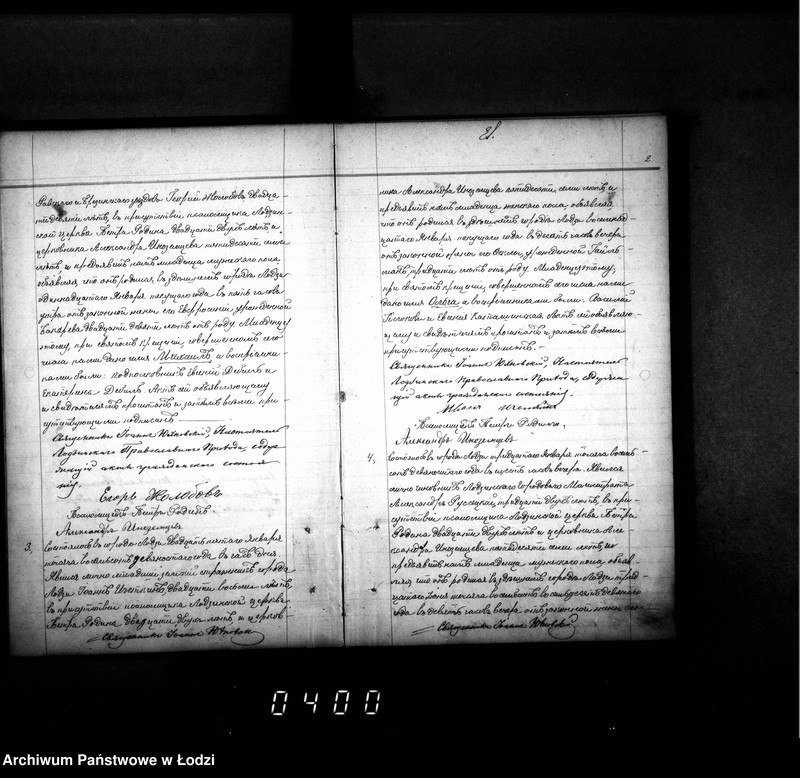 2
Равскаго и Брезинскаго уездовъ Георгій Жолобовъ двадца-
ти девяти лѣтъ, въ присутствіи псаломщика Лодзин-
ской церкви Петра Родина двадцати двухъ лѣтъ и
церковника Александра Иноземцева пятидесяти семи
лѣтъ и предъявилъ намъ младенца мужескаго пола
объявляя что онъ родился въ здѣшнемъ городѣ Лодзи
одиннадцатаго Января текущаго года въ пять часовъ
утра отъ законной жены его Евфросиніи, урожденной
двадцати девяти лѣтъ отъ роду. Младенцу
этому, при святомъ крещеніи, совершенномъ сего
числа нами дано имя Михаилъ, и воспріемни-
ками были: подполковникъ Евгеній и
Екатерина Актъ сей объявляющему
и свидѣтелямъ прочитанъ и затѣмъ всѣми при-
сутствующими подписанъ
Священникъ Іоаннъ Настоятель
Лодзинскаго Православнаго Прихода, содер-
жащій акты гражданскаго состоя-
нія.
Егоръ Жолобовъ
Псаломщикъ Петръ Родинъ.
Александръ Иноземцевъ
3,
Состоялось въ городѣ Лодзи двадцать пятаго Января
тысяча восемьсотъ девяностаго года въ часъ дня.
Явился лично младшій земскій стражникъ города
Лодзи Іоаннъ двадцати восьми лѣтъ
въ присутствіи псаломщика Лодзинской церкви
Петра Родина двадцати двухъ лѣтъ и церков-
Священникъ Іоаннъ
ника Александра Иноземцева пятидесяти семи лѣтъ и
предъявилъ намъ младенца женскаго пола, объявляя
что онъ родился въ здѣшнемъ городѣ Лодзи восемнад-
цатаго Января текущаго года въ десять часовъ вечера
отъ законной жены его урожденной
тридцати лѣтъ отъ роду. Младенцу этому,
при святомъ крещеніи, совершенномъ сего числа нами
дано имя Ольга, а воспріемниками были: Василій
и Евгенія Актъ сей объявляю-
щему и свидѣтелямъ прочитанъ и затѣмъ всѣми
присутствующими подписанъ. –
Священникъ Іоаннъ Настоятель
Лодзинскаго Православнаго Прихода, содержа-
щій акты гражданскаго состоянія.
Псаломщикъ Петръ Родинъ.
Александръ Иноземцевъ
4,
Состоялось въ городѣ Лодзи тридцатаго Января тысяча восемь-
сотъ девяностаго года въ шесть часовъ вечера. Явился
лично чиновникъ Лодзинскаго Городоваго Магистрата
Александръ тридцати двухъ лѣтъ, въ при-
сутствіи псаломщика Лодзинской церкви Петра
Родина двадцати двухъ лѣтъ и церковника Але-
ксандра Иноземцева пятидесяти семи лѣтъ, и
предъявилъ намъ младенца мужескаго пола объяв-
ляя, что онъ родился въ здѣшнемъ городѣ Лодзи трид-
цатаго Іюня тысяча восемьсотъ восемьдесятъ девятаго
года въ девять часовъ вечера отъ законной жены его
Священникъ Іоаннъ
0400
Archiwum Państwowe w Łodzi